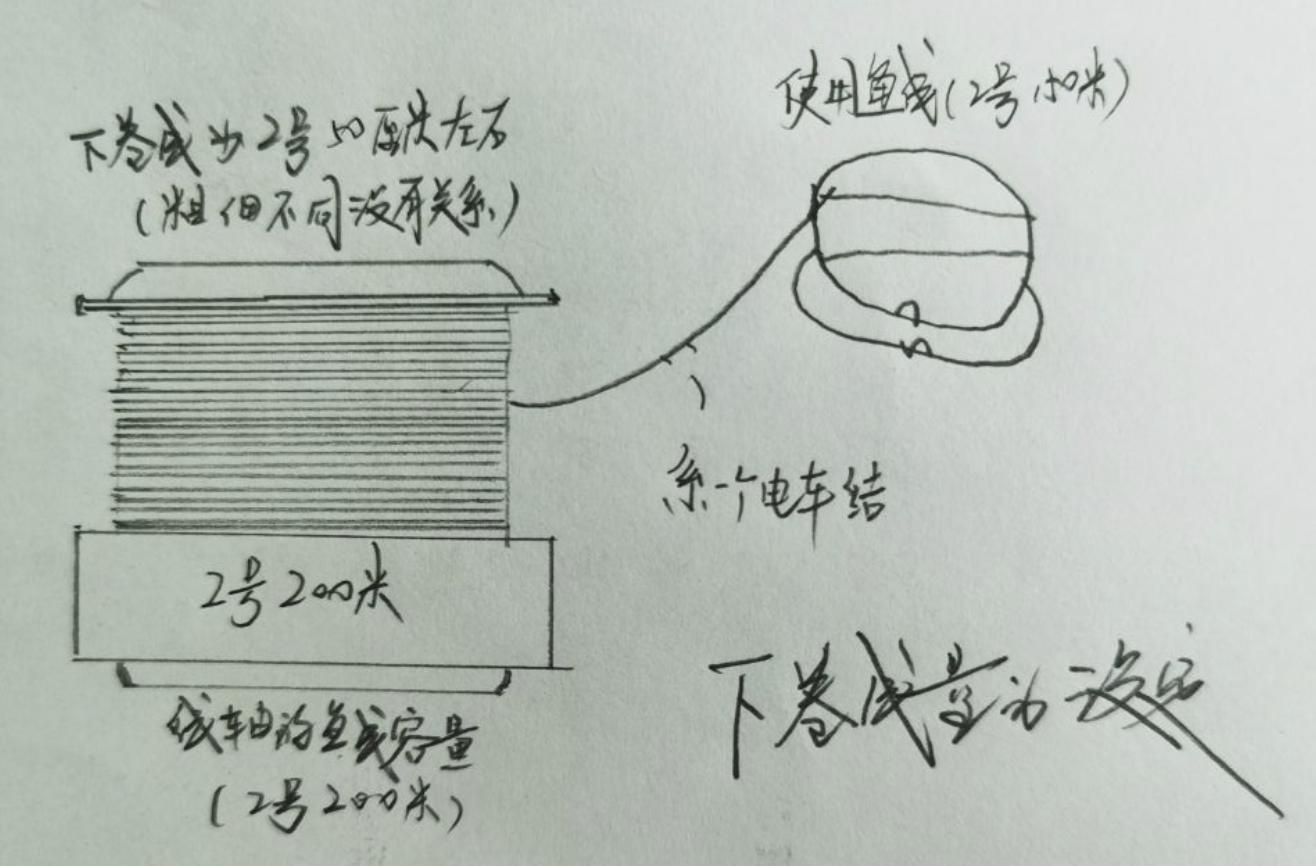 使用鱼线(2号 米)
下卷线为2号50 米左右
(粗细不同没有关系)
系一个电车结
2号200米
线轴的鱼线容量
(2号200米)
下卷线量为设定